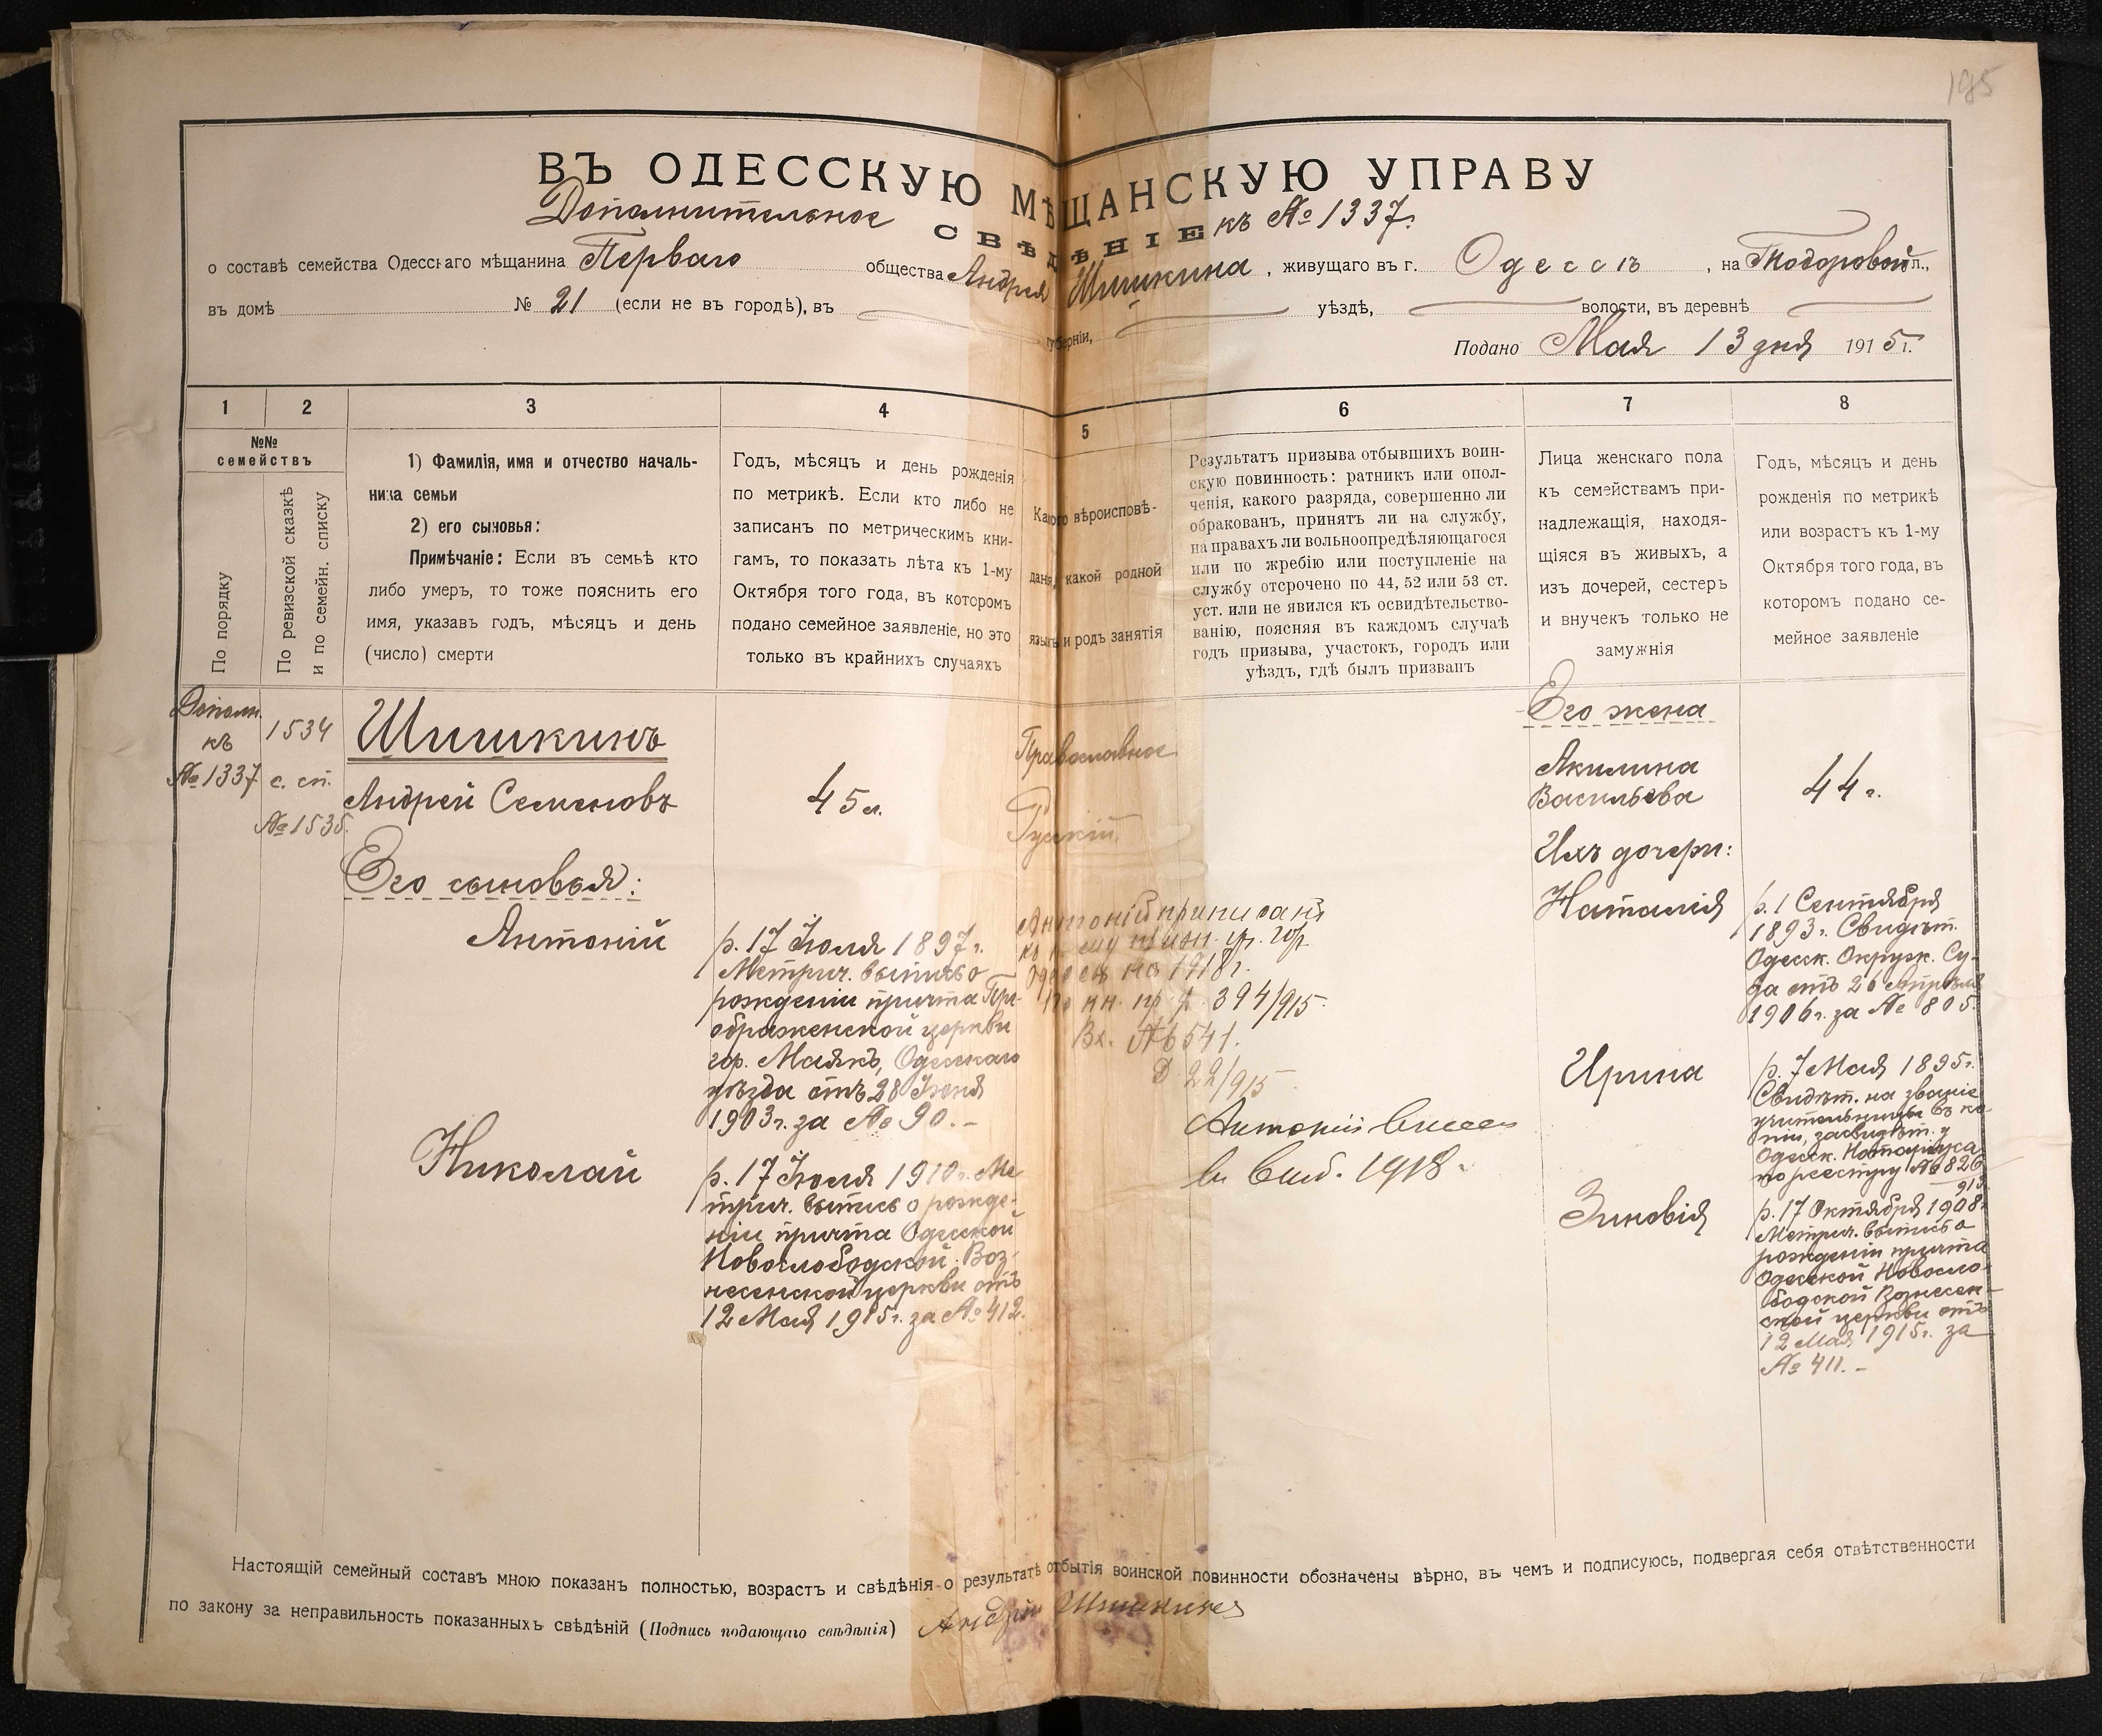 195
ВЪ ОДЕССКУЮ МѢЩАНСКУЮ УПРАВУ
Дополнительное СВѢДѢНІЕ къ № 1337.
о составѣ семейства Одесскаго мѣщанина Перваго общества Андрея Шишкина, живущаго въ г. Одессѣ, на л.,
въ домѣ № 21 (если не въ городѣ), въ губерніи, уѣздѣ, волости, въ деревнѣ
Подано Мая 13 дня 1915 г.
1 2 3 4 5 6 7 8
№№
семействъ
По порядку
По ревизской сказкѣ
и по семейн. списку
1) Фамилія, имя и отчество началь-
ника семьи
2) его сыновья:
Примѣчаніе: Если въ семьѣ кто
либо умеръ, то тоже пояснить его
имя, указавъ годъ, мѣсяцъ и день
(число) смерти
Годъ, мѣсяцъ и день рожденія
по метрикѣ. Если кто либо не
записанъ по метрическимъ кни-
гамъ, то показать лѣта къ 1-му
Октября того года, въ которомъ
подано семейное заявленіе, но это
только въ крайнихъ случаяхъ
Какого вѣроисповѣ-
данія, какой родной
языкъ и родъ занятія
Результатъ призыва отбывшихъ воин-
скую повинность: ратникъ или опол-
ченія, какого разряда, совершенно ли
обракованъ, принятъ ли на службу,
на правахъ ли вольноопредѣляющагося
или по жребію или поступленіе на
службу отсрочено по 44, 52 или 53 ст.
уст. или не явился къ освидѣтельство-
ванію, поясняя въ каждомъ случаѣ
годъ призыва, участокъ, городъ или
уѣздъ, гдѣ былъ призванъ
Лица женскаго пола
къ семействамъ при-
надлежащія, находя-
щіяся въ живыхъ, а
изъ дочерей, сестеръ
и внучекъ только не
замужнія
Годъ, мѣсяцъ и день
рожденія по метрикѣ
или возрастъ къ 1-му
Октября того года, въ
которомъ подано се-
мейное заявленіе
Дополн.
къ
№ 1337
1534
с. сп.
№ 1535.
Шишкинъ
Андрей Семеновъ
45 л.
Православное
Русскій.
Его сыновья:
Антоній
р. 17 Іюля 1897 г.
Метрич. выпись о
рожденіи причта Пре-
ображенской церкви
гор. Маякъ, Одесскаго
уѣзда отъ 28 Іюня
1903 г. за № 90. –
Антоній приписанъ
къ призывн. уч. гор.
Одессы на 1918 г.
по кн. пр. у. 394/915.
Вх. № 6541.
Д. 22/915
Антоній внесен
в 1918 г.
Николай
р. 17 Іюля 1910 г. Ме-
трич. выпись о рожде-
ніи причта Одесской
Новослободской Воз-
несенской церкви отъ
12 Мая 1915 г. за № 412.
Его жена
Акилина
Васильева
44 г.
Ихъ дочери:
Наталія
р. 1 Сентября
1893 г. Свидѣт.
Одесск. Окружн. Су-
да отъ 26 Апрѣля
1906 г. за № 805.
Ирина
р. 7 Мая 1895 г.
Свидѣт. на званіе
учительницы въ ко-
піи, засвидѣт. у
Одесск. Нотаріуса
по реестру № 826
913.
Зиновія
р. 17 Октября 1908 г.
Метрич. выпись о
рожденіи причта
Одесской Новосло-
бодской Вознесен-
ской церкви отъ
12 Мая 1915 г. за
№ 411. –
Настоящій семейный составъ мною показанъ полностью, возрастъ и свѣдѣнія о результатѣ отбытія воинской повинности обозначены вѣрно, въ чемъ и подписуюсь, подвергая себя отвѣтственности
по закону за неправильность показанныхъ свѣдѣній (Подпись подающаго свѣдѣнія) Андрей Шишкинъ